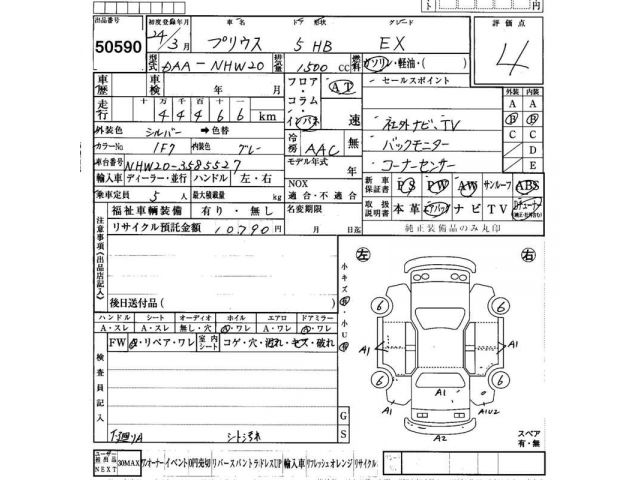 出品番号 初度登録年月 車名 ドア 形状 グレード 評価点
50590 24/3月 プリウス 5 HB EX 4
型式 DAA-NHW20 排気量 1500 CC 燃料 ガソリン・軽油・( )
車歴 車検 年 月 フロア・コラム・インパネ AT 速 セールスポイント 外装 内装
走行 十万 千百十 44466 km 社外ナビ、TV A A
外装色 シルバー →色替 B B
カラーNo 1F7 内装色 グレー 冷房 AAC 無 バックモニター C C
車台番号 NHW20-3585527 モデル年式 年 コーナーセンサー D
輸入車 ディーラー・並行 ハンドル 左・右 E
NOX 適合・不適合 新車保証書 PS PW AW サンルーフ ABS
乗車定員 5 人 最大積載量 kg
福祉車輌装備 有り・無し 名変期限 取扱説明書 本革 エアバック ナビ TV
リサイクル預託金額 10790 円 月 日迄 純正装備品のみ丸印
注意事項(出品店記入)
後日送付品( )
小キズ 小U
左 右
ハンドル シート オーディオ ホイル エアロ ドアミラー
A・スレ A・スレ 無し・穴 A・ワレ A・ワレ A・ワレ
FW A・リペア・ワレ 室内シート コゲ・穴・汚れ・キズ・破れ
検査員記入
6 6
A1 A1
6 6
A1 A1 A1U2
A2
下廻りA シート汚れ
G
S
スペア 有・無
ユーザー 担出品 NEXT 30MAX ワンオーナー イベント 0円売切 リバース バントラ ドレスUP 輸入車 リフレッシュ オレンジ リサイクル